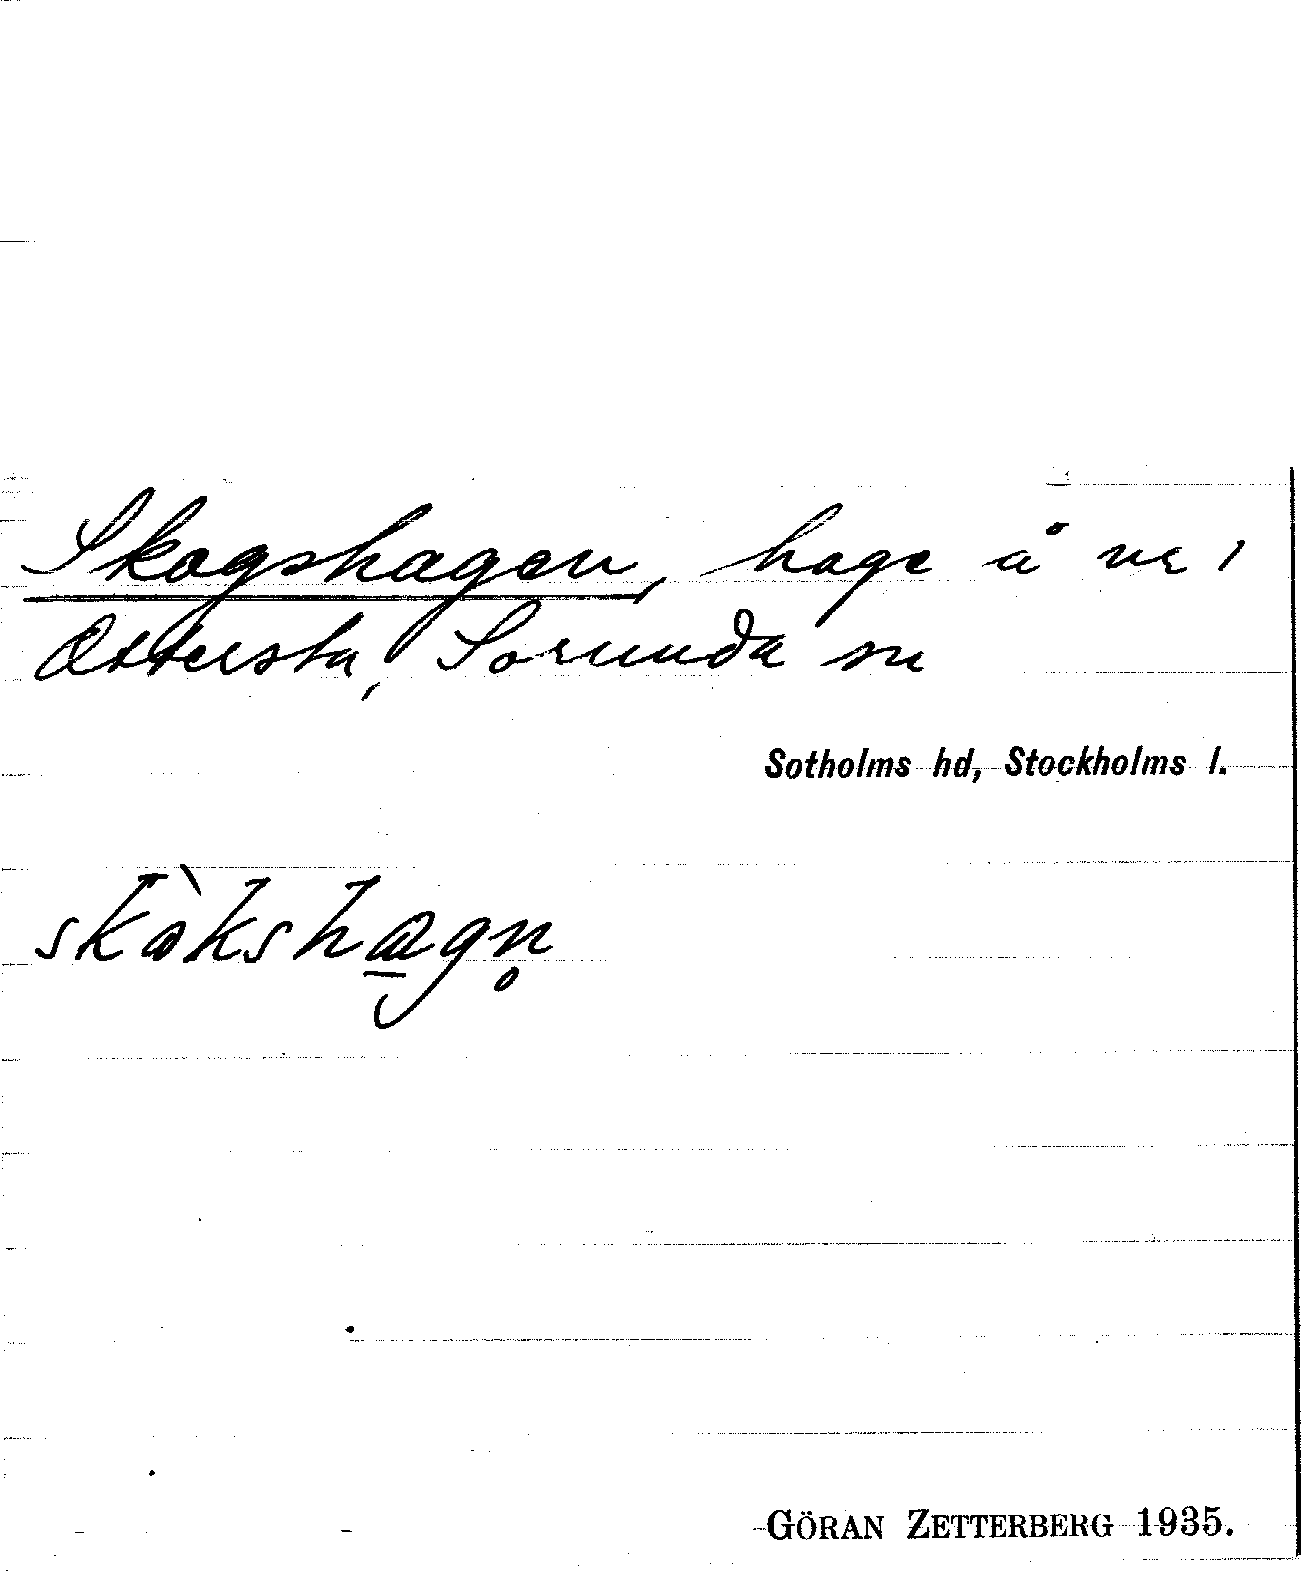 Skogshagen, hage å nr 1
Ottersta, Sorunda sn
Sotholms hd, Stockholms l.
GÖRAN ZETTERBERG 1935.